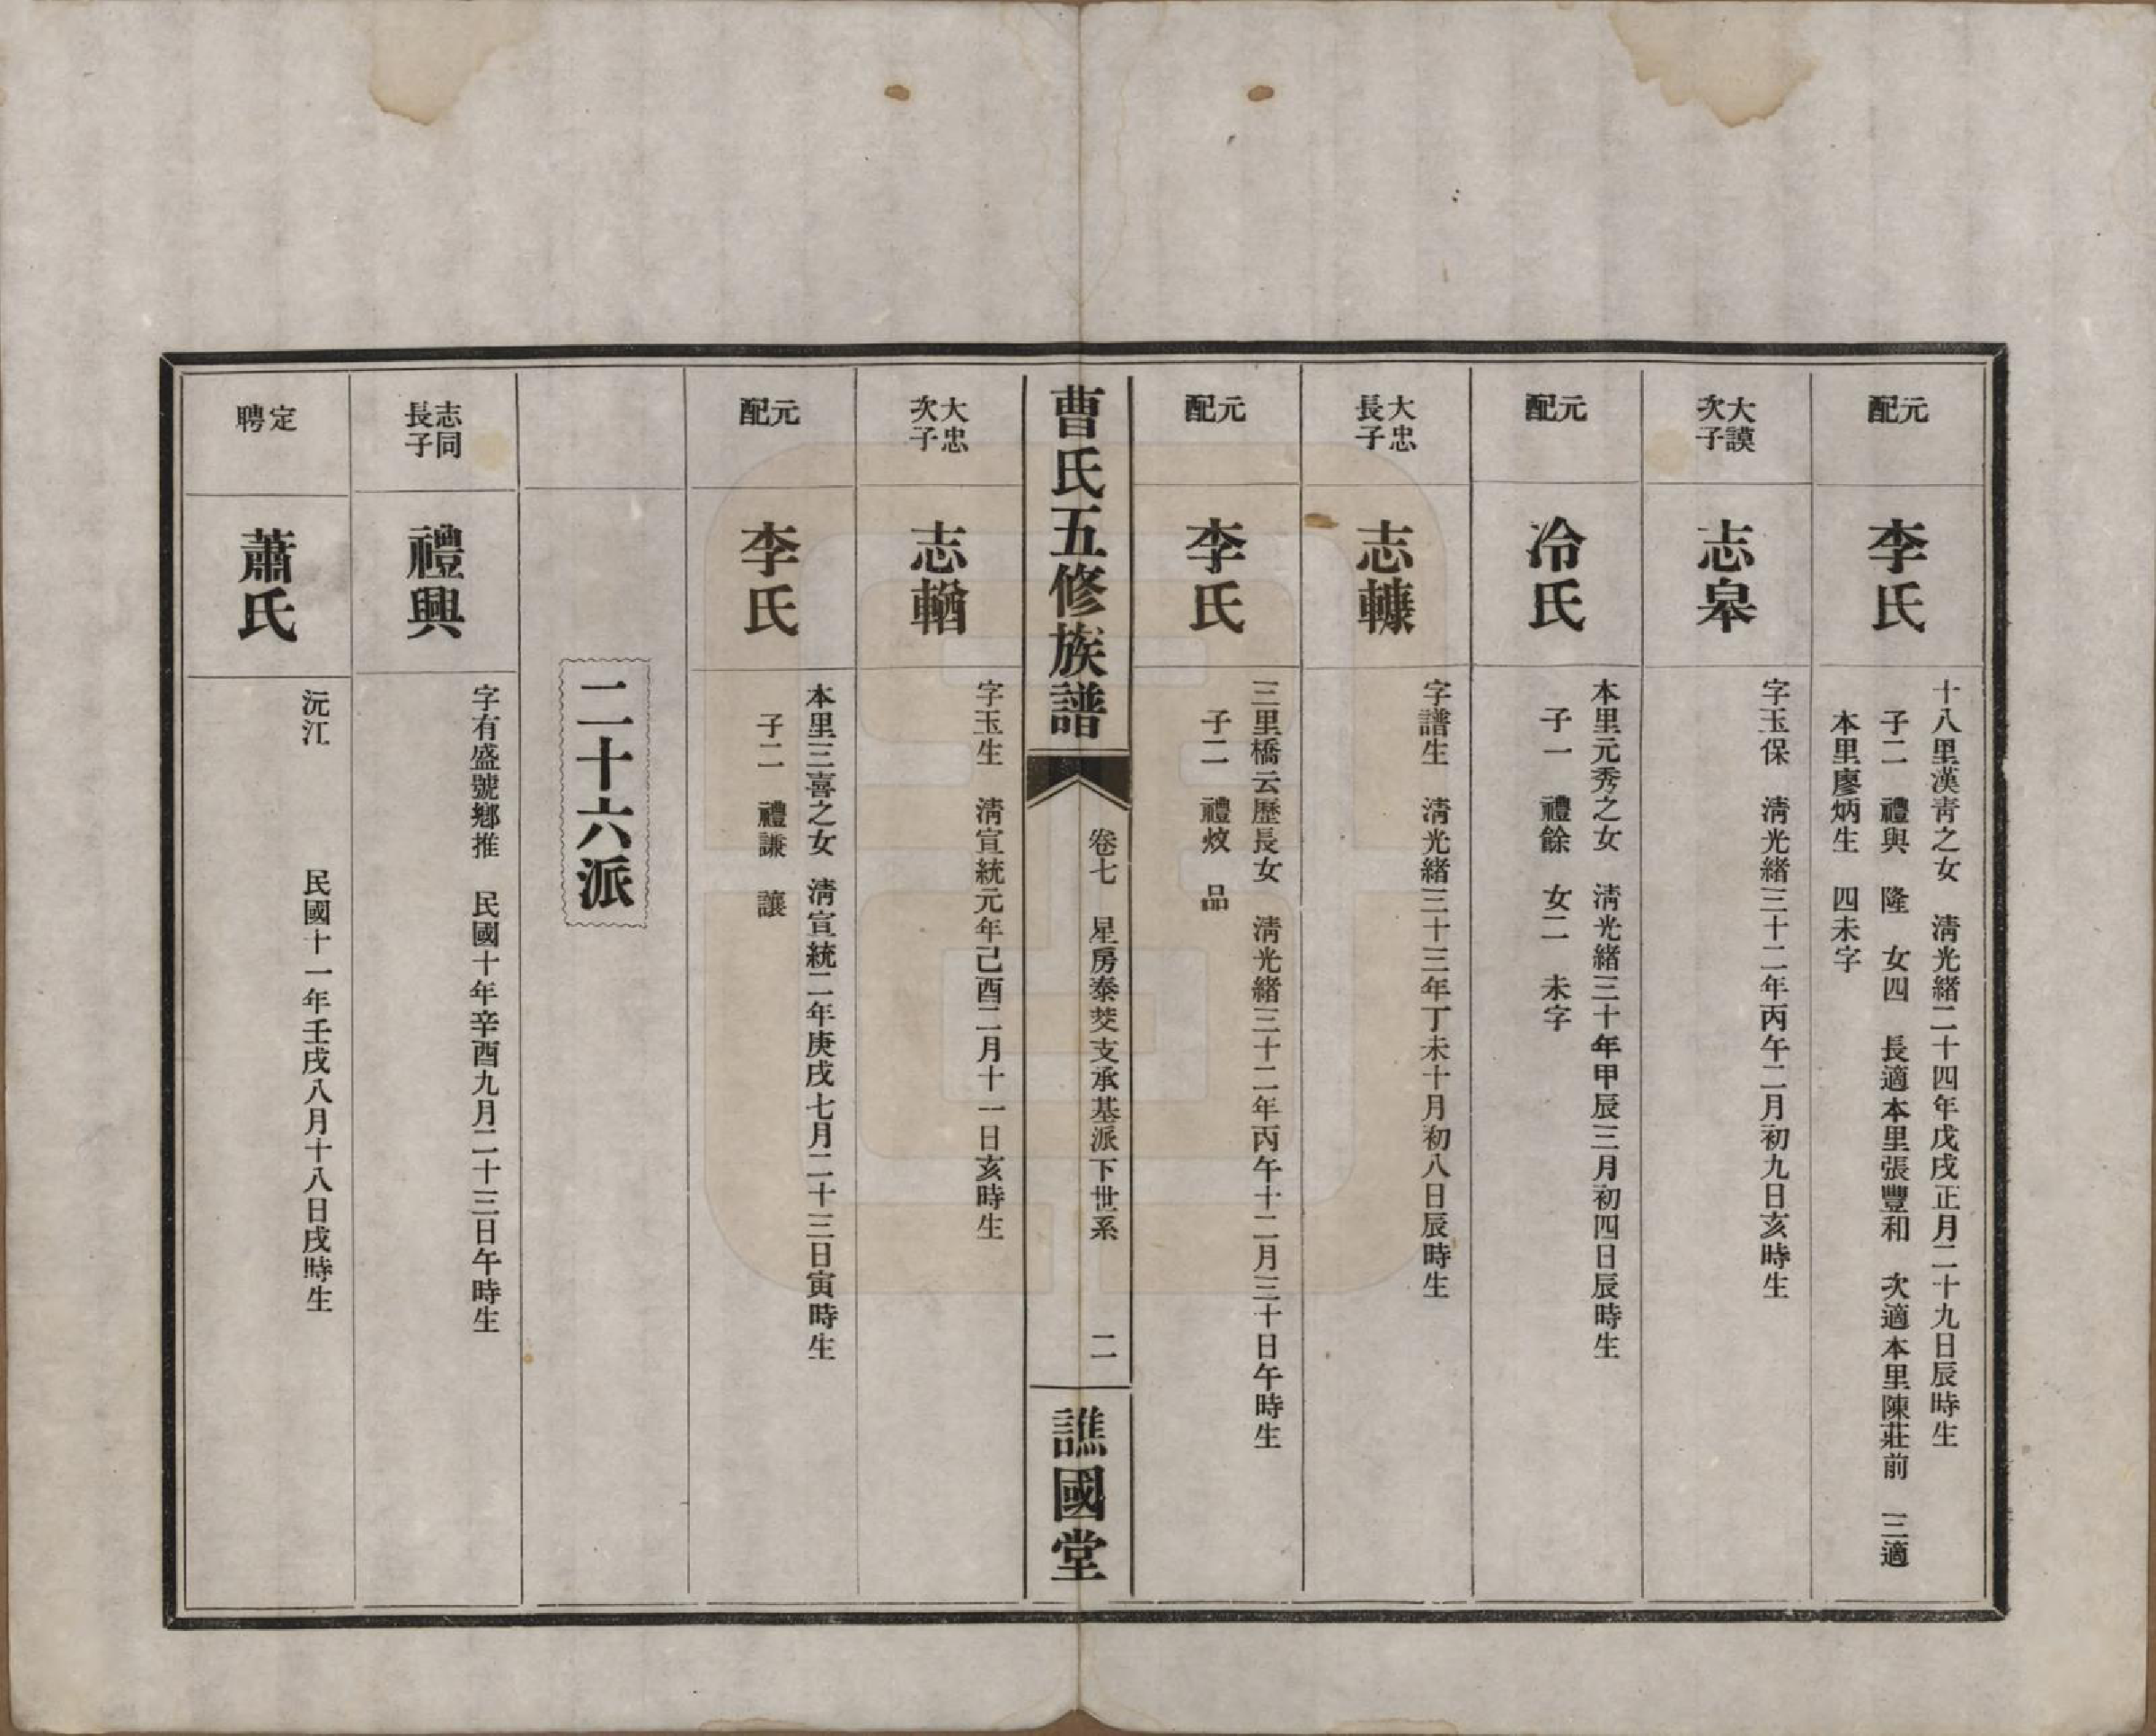 元配
李氏
十八里漢靑之女　淸光緒二十四年戊戌正月二十九日辰時生
子二　禮興　隆　女四　長適本里張豐和　次適本里陳莊前　三適
本里廖炳生　四未字
大謨次子
志皋
字玉保　淸光緒三十二年丙午二月初九日亥時生
元配
冷氏
本里元秀之女　淸光緒三十年甲辰三月初四日辰時生
子一　禮餘　女二　未字
大忠長子
志𨎍
字譜生　淸光緒三十三年丁未十月初八日辰時生
元配
李氏
三里橋云歷長女　淸光緒三十二年丙午十二月三十日午時生
子二　禮炆　品
曹氏五修族譜
卷七　星房泰焂支承基派下世系　二
譙國堂
大忠次子
志輶
字玉生　淸宣統元年己酉二月十一日亥時生
元配
李氏
本里三喜之女　淸宣統二年庚戌七月二十三日寅時生
子二　禮謙　讓
二十六派
志同長子
禮興
字有盛號鄉推　民國十年辛酉九月二十三日午時生
定聘
蕭氏
沅江　民國十一年壬戌八月十八日戌時生